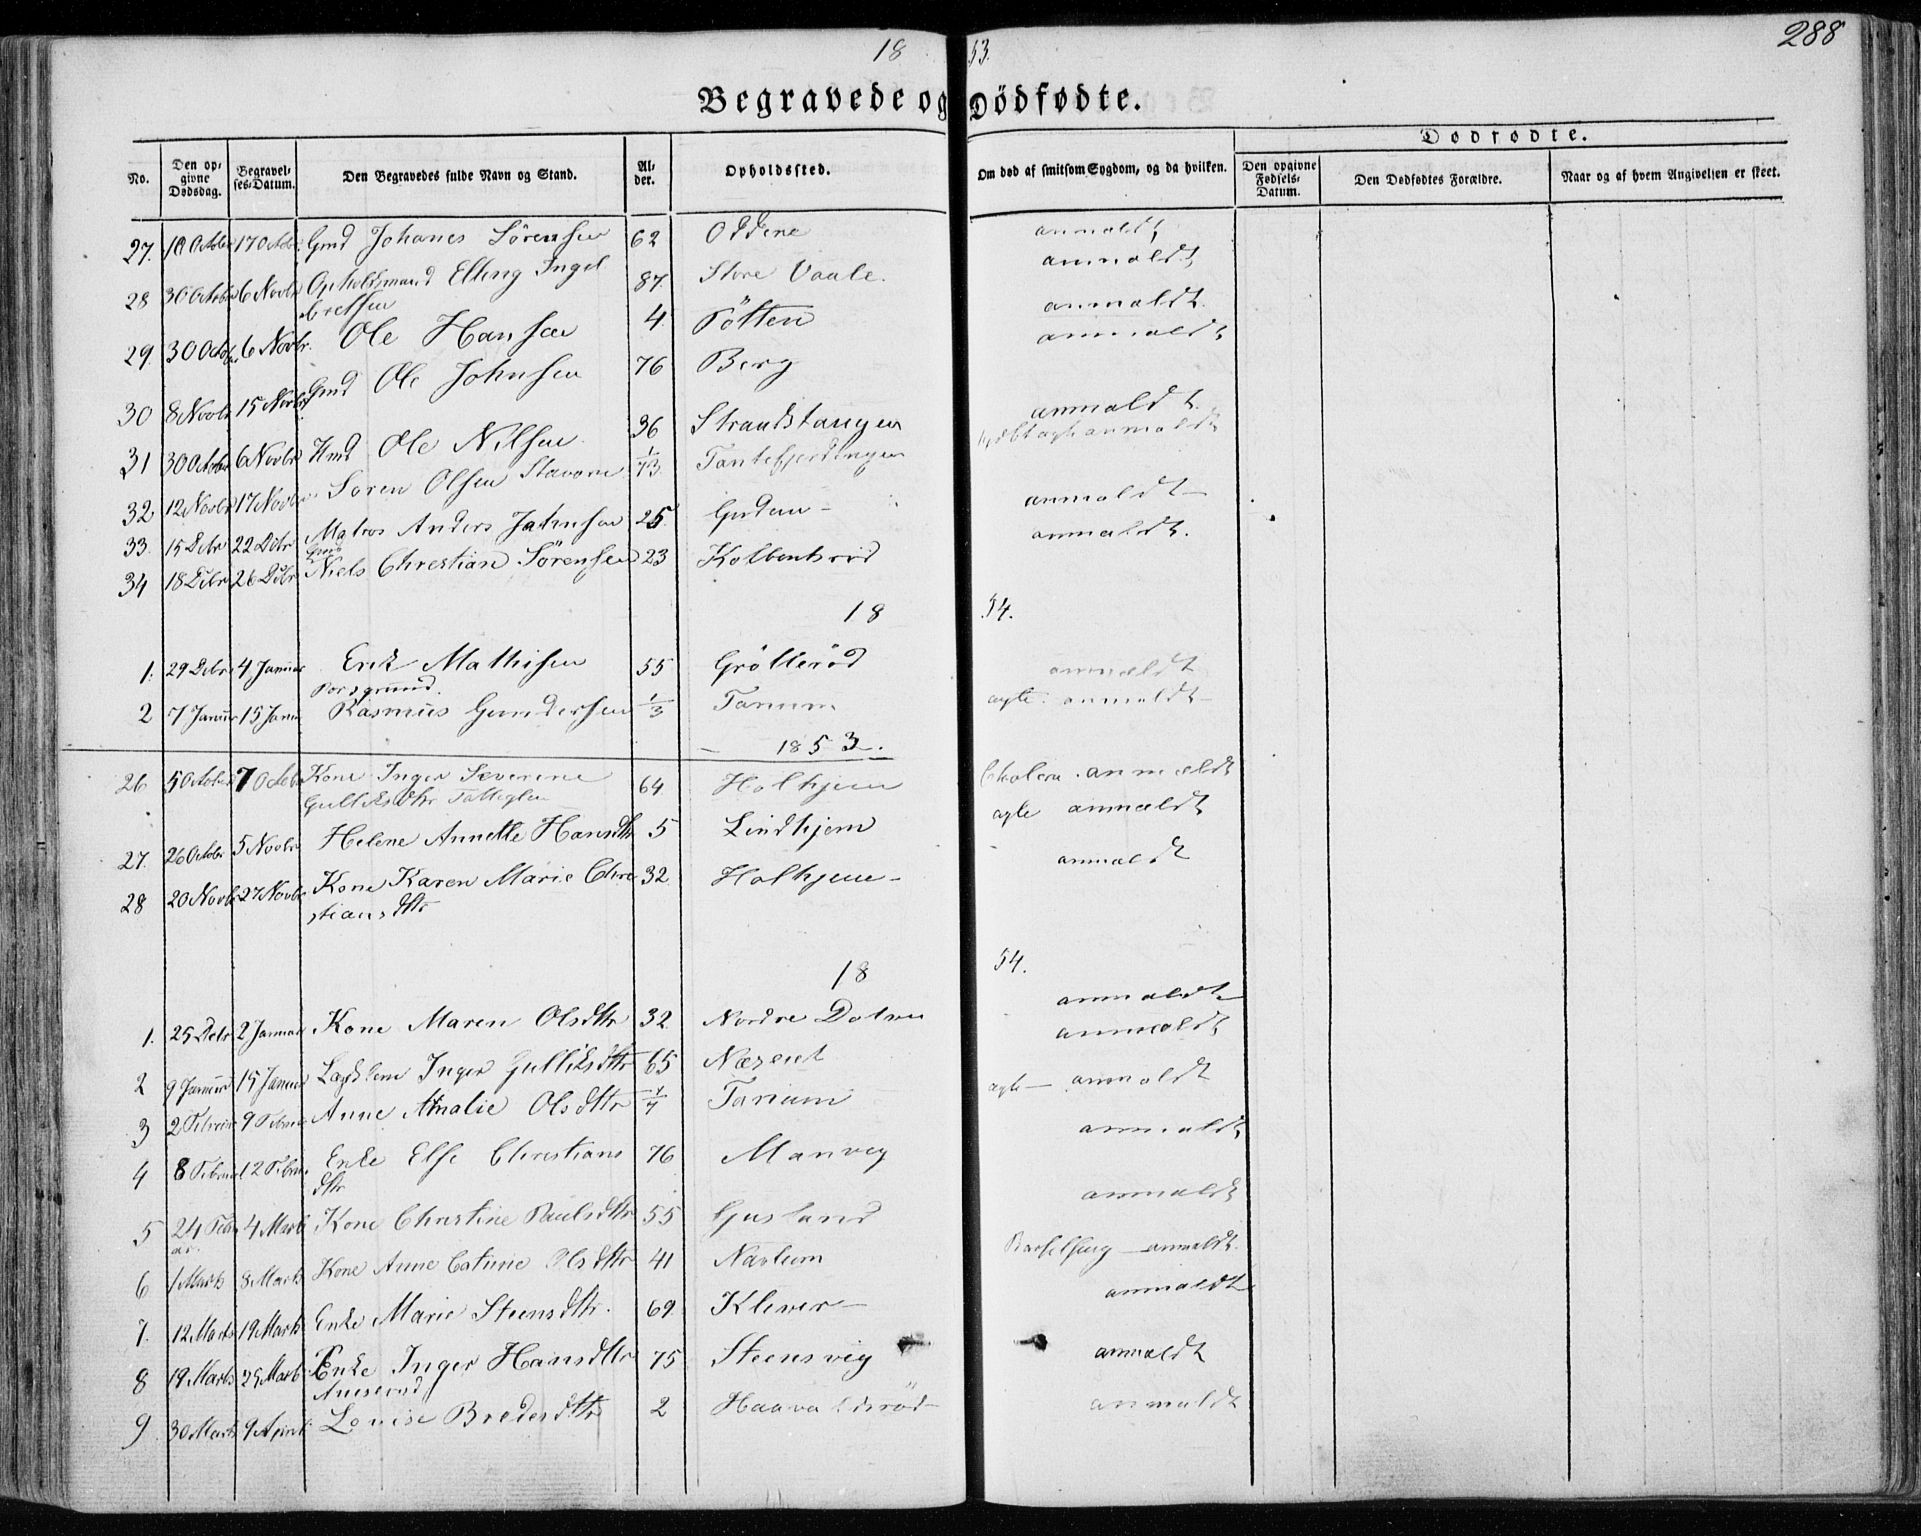 288
18 53.
Begravede og Dödfødte.
Dødfødte.
No. Den opgivne Dødsdag. Begravelses-Datum. Den Begravedes fulde Navn og Stand. Alder. Opholdssted. Om død af smitsom Sygdom, og da hvilken. Den opgivne Fødsels-Datum. Den Dødfødtes Forældre. Naar og af hvem Angivelsen er skeet.
27. 10 October 17 Octbr. Gmd Johanes Sörensen 62 Oddene anmeldt
28 30 Octobr 6 Novbr Opholdsmand Elling Ingel 87. Store Vaale. anmeldt
bretsen
29. 30 Octobr 6 Novbr. Ole Hansen 4. Tötten anmeldt.
30 8 Novbr 15 Novbr Gmd Ole Johnsen 76 Berg anmeldt
31 30 Octobr 6 Novbr Hmd Ole Nilsen 36 Strandstangen anmeldt.
32 12 Novbr 17 Novbr Soren Olsen Stavern 1/73 Tantefjerdingen anmeldt
33. 15 Debr 22 Debr Matros Anders Jahnsen 25 anmeldt
34 18 Debr 26 Debr Gmd Niels Christian Sörensen 23 Kolbensröd anmeldt.
18 54.
1. 29 Debr 4 Januar Erik Mathisen 55 Grötteröd anmeldt
Porsgrund.
2 7 Januar 15 Janu Rasmus Gundersen 1/3 Tanum ægte. anmeldt
1853.
26 5 October 7 Octobr Kone Inger Severine 64 Holhjem Cholera. anmeldt
Gulliksdtr
27. 26 Octobr 5 Novbr Helene Annette Hansdtr 5 Lindhjem ægte anmeldt
28 20 Novbr 27 Novbr Kone Karen Marie Chri 32 Holhjem anmeldt
stiansdtr
18 54.
1. 25 Debr 2 Januar Kone Maren Olsdtr 32 Nordre Dolven anmeldt
2 9 Januar 15 Januar Lægdslem Inger Gulliksdtr 65 anmeldt
3 2 Februar 9 Februar Anne Amalie Olsdtr 1/7 Tanum ægte anmeldt
4 8 Februar 12 Februar Enke Else Christians 76 Manvig anmeldt
dtr
5 24 Febr 4 Marts Kone Christine Paulsdtr 55 Gusland anmeldt
ar.
6 1 Marts 8 Marts Kone Anne Catrine Olsdtr 41 Navlum Barselseng anmeldt.
7. 12 Marts 19 Marts Enke Marie Steensdtr. 69. Klever anmeldt
8 19 Marts 25 Marts Enke Inger Hansdtr 75 Steensvig anmeldt
9 30 Marts 9 April Louise Bredesdtr 2 Haavaldsröd anmeldt